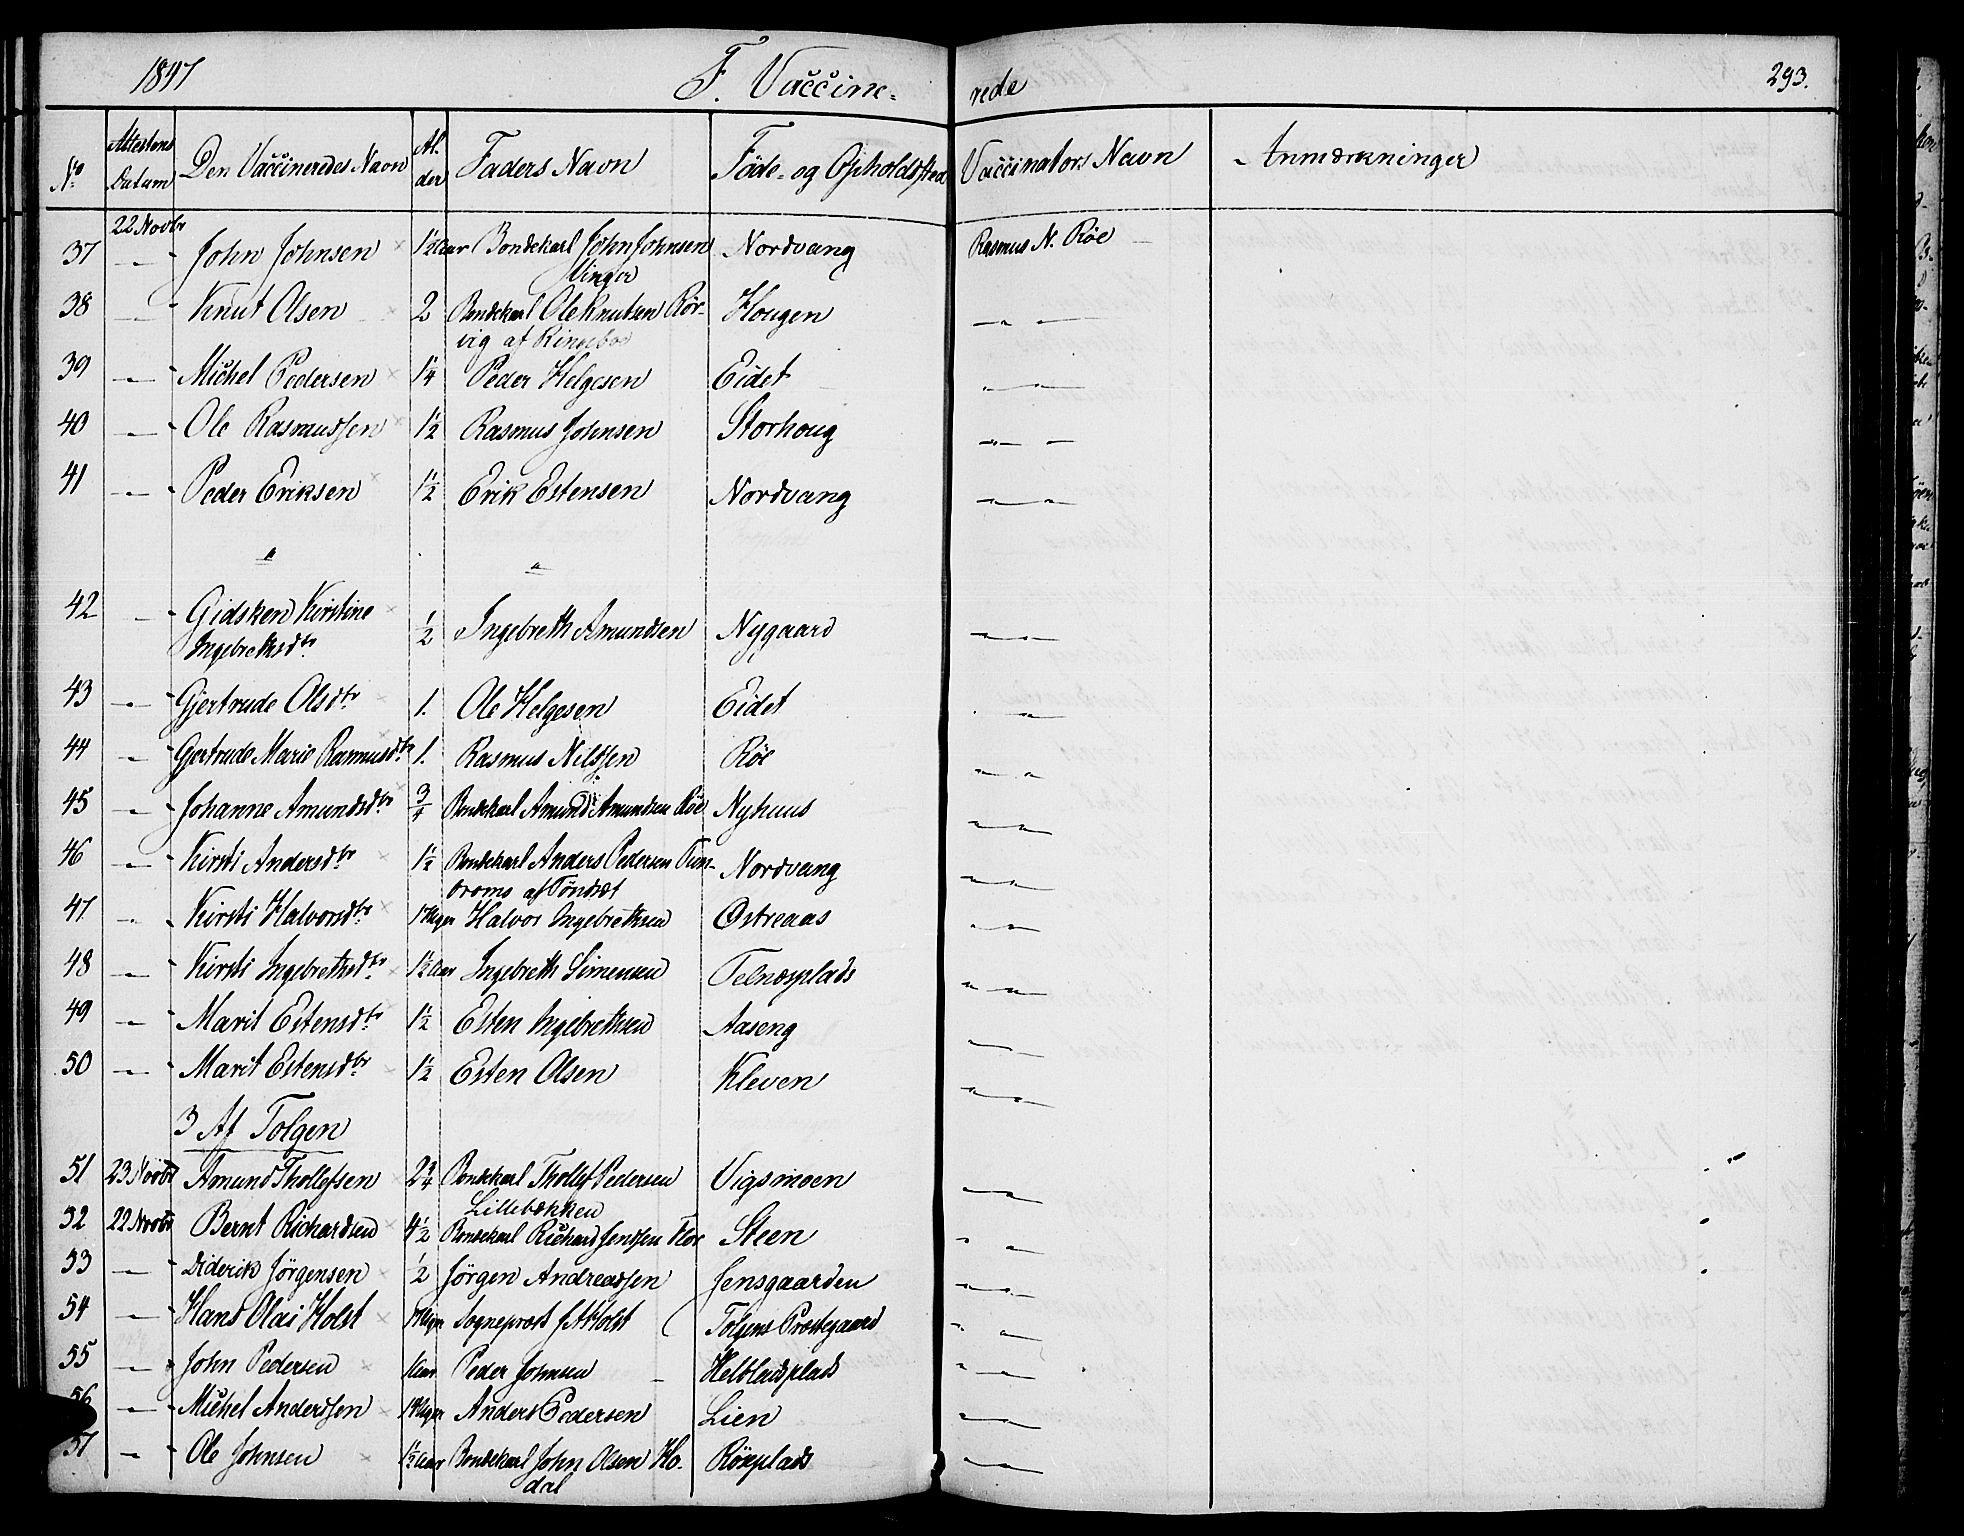 1847 F. Vaccine- rede 293.
No Attestens Datum Den Vaccineredes Navn Alder Faders Navn Föde- og Opholdssted Vaccinators Navn Anmærkninger
22 Novbr
37 — John Johnsen 1½ Aar Bondekarl John Johnsen Nordvang Rasmus N. Röe
Vingo
38 — Knut Olsen 2 Bondekarl Ole Knutsen Rör- Hougen — " —
vig af Ringeboe
39 — Michel Pedersen 1¼ Peder Helgesen Eidet — " —
40 — Ole Rasmussen 1½ Rasmus Johnsen Storhoug — " —
41 — Peder Eriksen 1½ Erik Estensen Nordvang — " —
" "
42 — Gidsken Kirstine ½ Ingebreth Amundsen Nygaard — " —
Ingebrethsdtr
43 — Gjertrude Olsdtr 1. Ole Helgesen Eidet — " —
44 — Gjertrude Marie Rasmusdtr 1. Rasmus Nilssen Röe — " —
45 — Johanne Amundsdtr ¾ Bondekarl Amund Amundsen Röe Nyhuus — " —
46 — Kirsti Andersdtr 1½ Bondekarl Anders Pedersen Tun- Nordvang — " —
droms af Töndset
47 — Kirsti Halvorsdtr 17 Uger Halvor Ingebrethsen Østreaas — " —
48 — Kirsti Ingebrethsdtr 1½ Aar Ingebreth Simensen Telnesplads — " —
49 — Marit Estensdtr 1½ Esten Ingebrethsen Aaseng — " —
50 — Marit Estensdtr 1½ Esten Olsen Kleven — " —
3 Af Tolgen
51 23 Novbr Amund Thollefsen 2¾ Bondekarl Thollef Pedersen Vigsmoen — " —
Lillebækken
52 22 Novbr Bernt Richardsen 4½ Bondekarl Richard Jenssen Kor Steen — " —
53 — Diderik Jörgensen ½ Jörgen Andreassen Jensgaarden — " —
54 — Hans Olai Holst Uger Sogneprest J. A. Holst Tolgens Prestegaard — " —
55 — John Pedersen 1 Aar Peder Johnsen Helbladsplads — " —
56 — Michel Anderssen Uger Anders Pedersen Lien — " —
57 — Ole Johnsen 1½ Aar Bondekarl John Olsen Ho- Röseplads — " —
dal